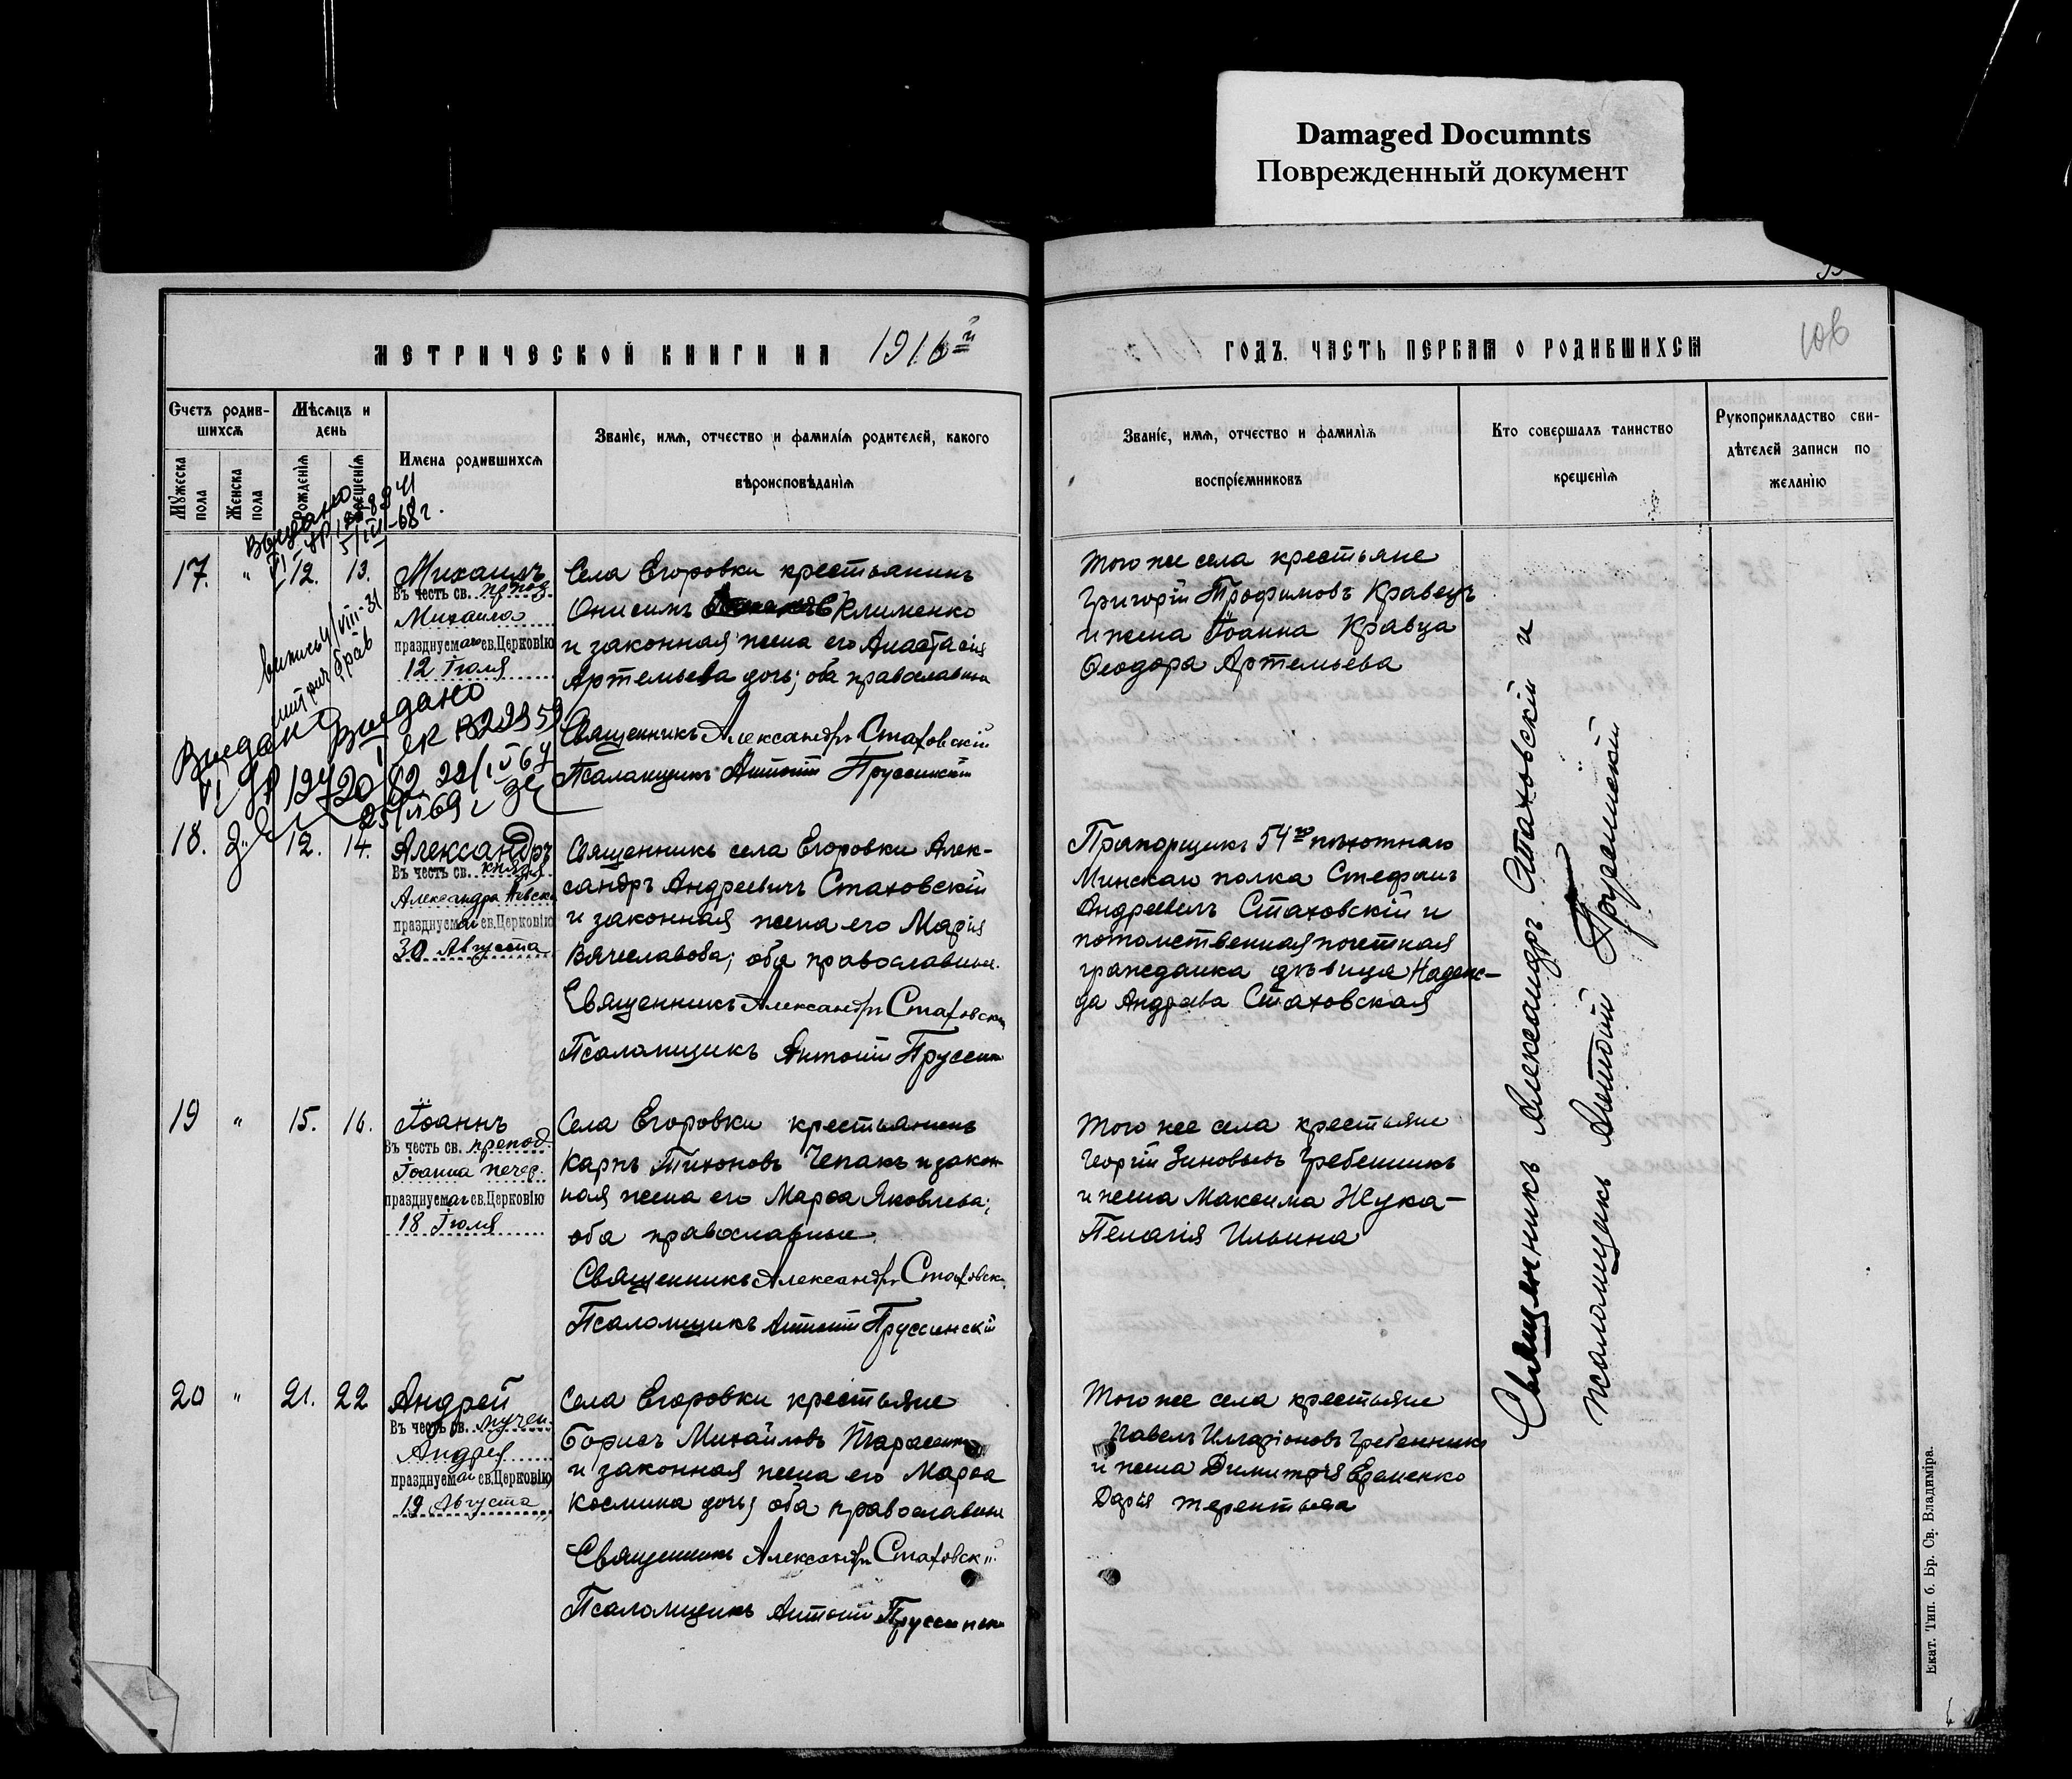 Damaged Documnts
Поврежденный документ
МЕТРИЧЕСКОЙ КНИГИ НА 1916й
ГОДЪ. ЧАСТЬ ПЕРВАЯ О РОДИВШИХСЯ
Счетъ родив-
шихся
Мужеска
пола
Женска
пола
Мѣсяцъ и
день
рожденія
крещенія
Имена родившихся
Званіе, имя, отчество и фамилія родителей, какого
вѣроисповѣданія
Званіе, имя, отчество и фамилія
воспріемниковъ
Кто совершалъ таинство
крещенія
Рукоприкладство сви-
дѣтелей записи по
желанію
Выдано
5/III-68 г.
17. " 12. 13. Михаилъ
Въ честь св. препод.
Михаила
празднуемаго св. Церковію
12 Іюля
Села Егоровки крестьянинъ
Онисимъ Клименко
и законная жена его Анастасія
Артемьева дочь; оба православные
Священникъ Александръ Стаховскій
Псаломщикъ Антоній Пруссинскій
Того же села крестьяне
Григорій Трофимовъ Кравецъ
и жена Іоанна Кравца
Ѳеодора Артемьева
Выдано
Выдано
18. 12. 14. Александръ
Въ честь св. князя
Александра Невска
празднуемаго св. Церковію
30 Августа
Священникъ села Егоровки Алек-
сандръ Андреевичъ Стаховскій
и законная жена его Марія
Вячеславова; оба православные.
Священникъ Александръ Стаховскій
Псаломщикъ Антоній Пруссин
Прапорщикъ 54го пѣхотнаго
Минскаго полка Стефанъ
Андреевичъ Стаховскій и
потомственная почетная
гражданка дѣвица Надеж-
да Андреева Стаховская
19 " 15. 16. Іоаннъ
Въ честь св. препод.
Іоанна печер.
празднуемаго св. Церковію
18 Іюля
Села Егоровки крестьянинъ
Карпъ Тихоновъ Чепакъ и закон-
ная жена его Марѳа Яковлева;
оба православные.
Священникъ Александръ Стаховск
Псаломщикъ Антоній Пруссинскій
Того же села крестьяне
Георгій Зиновьевъ Гребенникъ
и жена Максима Жука-
Пелагія Ильина
20 " 21. 22 Андрей
Въ честь св. мучен.
Андрея
празднуемаго св. Церковію
19 Августа
Села Егоровки крестьяне
Борисъ Михайловъ Тарасенко
и законная жена его Марѳа
Космина дочь; оба православные
Священникъ Александръ Стаховскій
Псаломщикъ Антоній Пруссинск
Того же села крестьяне
Павелъ Илларіоновъ Гребенникъ
и жена Димитрія Еременко
Дарія Терентьева
Священникъ Александръ Стаховскій и
Псаломщикъ Антоній Пруссинскій
Екат. Тип. б. Бр. Св. Владиміра.